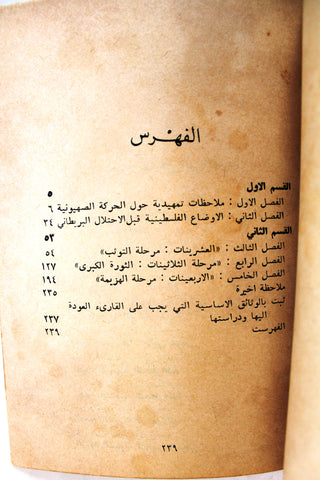 الفهرس
القسم الاول ٥
الفصل الاول : ملاحظات تمهيدية حول الحركة الصهيونية ٦
الفصل الثاني : الاوضاع الفلسطينية قبل الاحتلال البريطاني ٢٤
القسم الثاني ٥٣
الفصل الثالث : «العشرينات : مرحلة التوثب» ٥٤
الفصل الرابع : «مرحلة الثلاثينات : الثورة الكبرى» ١٢٧
الفصل الخامس : «الاربعينات : مرحلة الهزيمة» ١٩٤
ملاحظة اخيرة ٢٣٥
ثبت بالوثائق الاساسية التي يجب على القارىء العودة
اليها ودراستها ٢٣٧
الفهرست ٢٣٩
٢٣٩